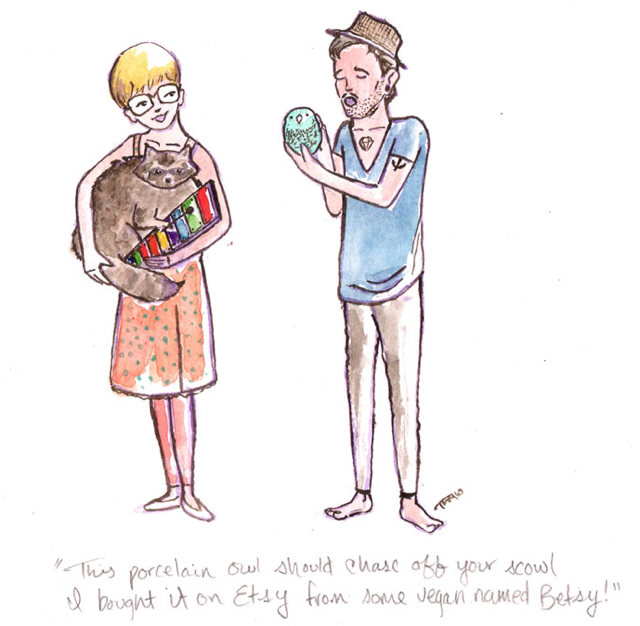 "This porcelain owl should chase off your scowl
I bought it on Etsy from some vegan named Betsy!"